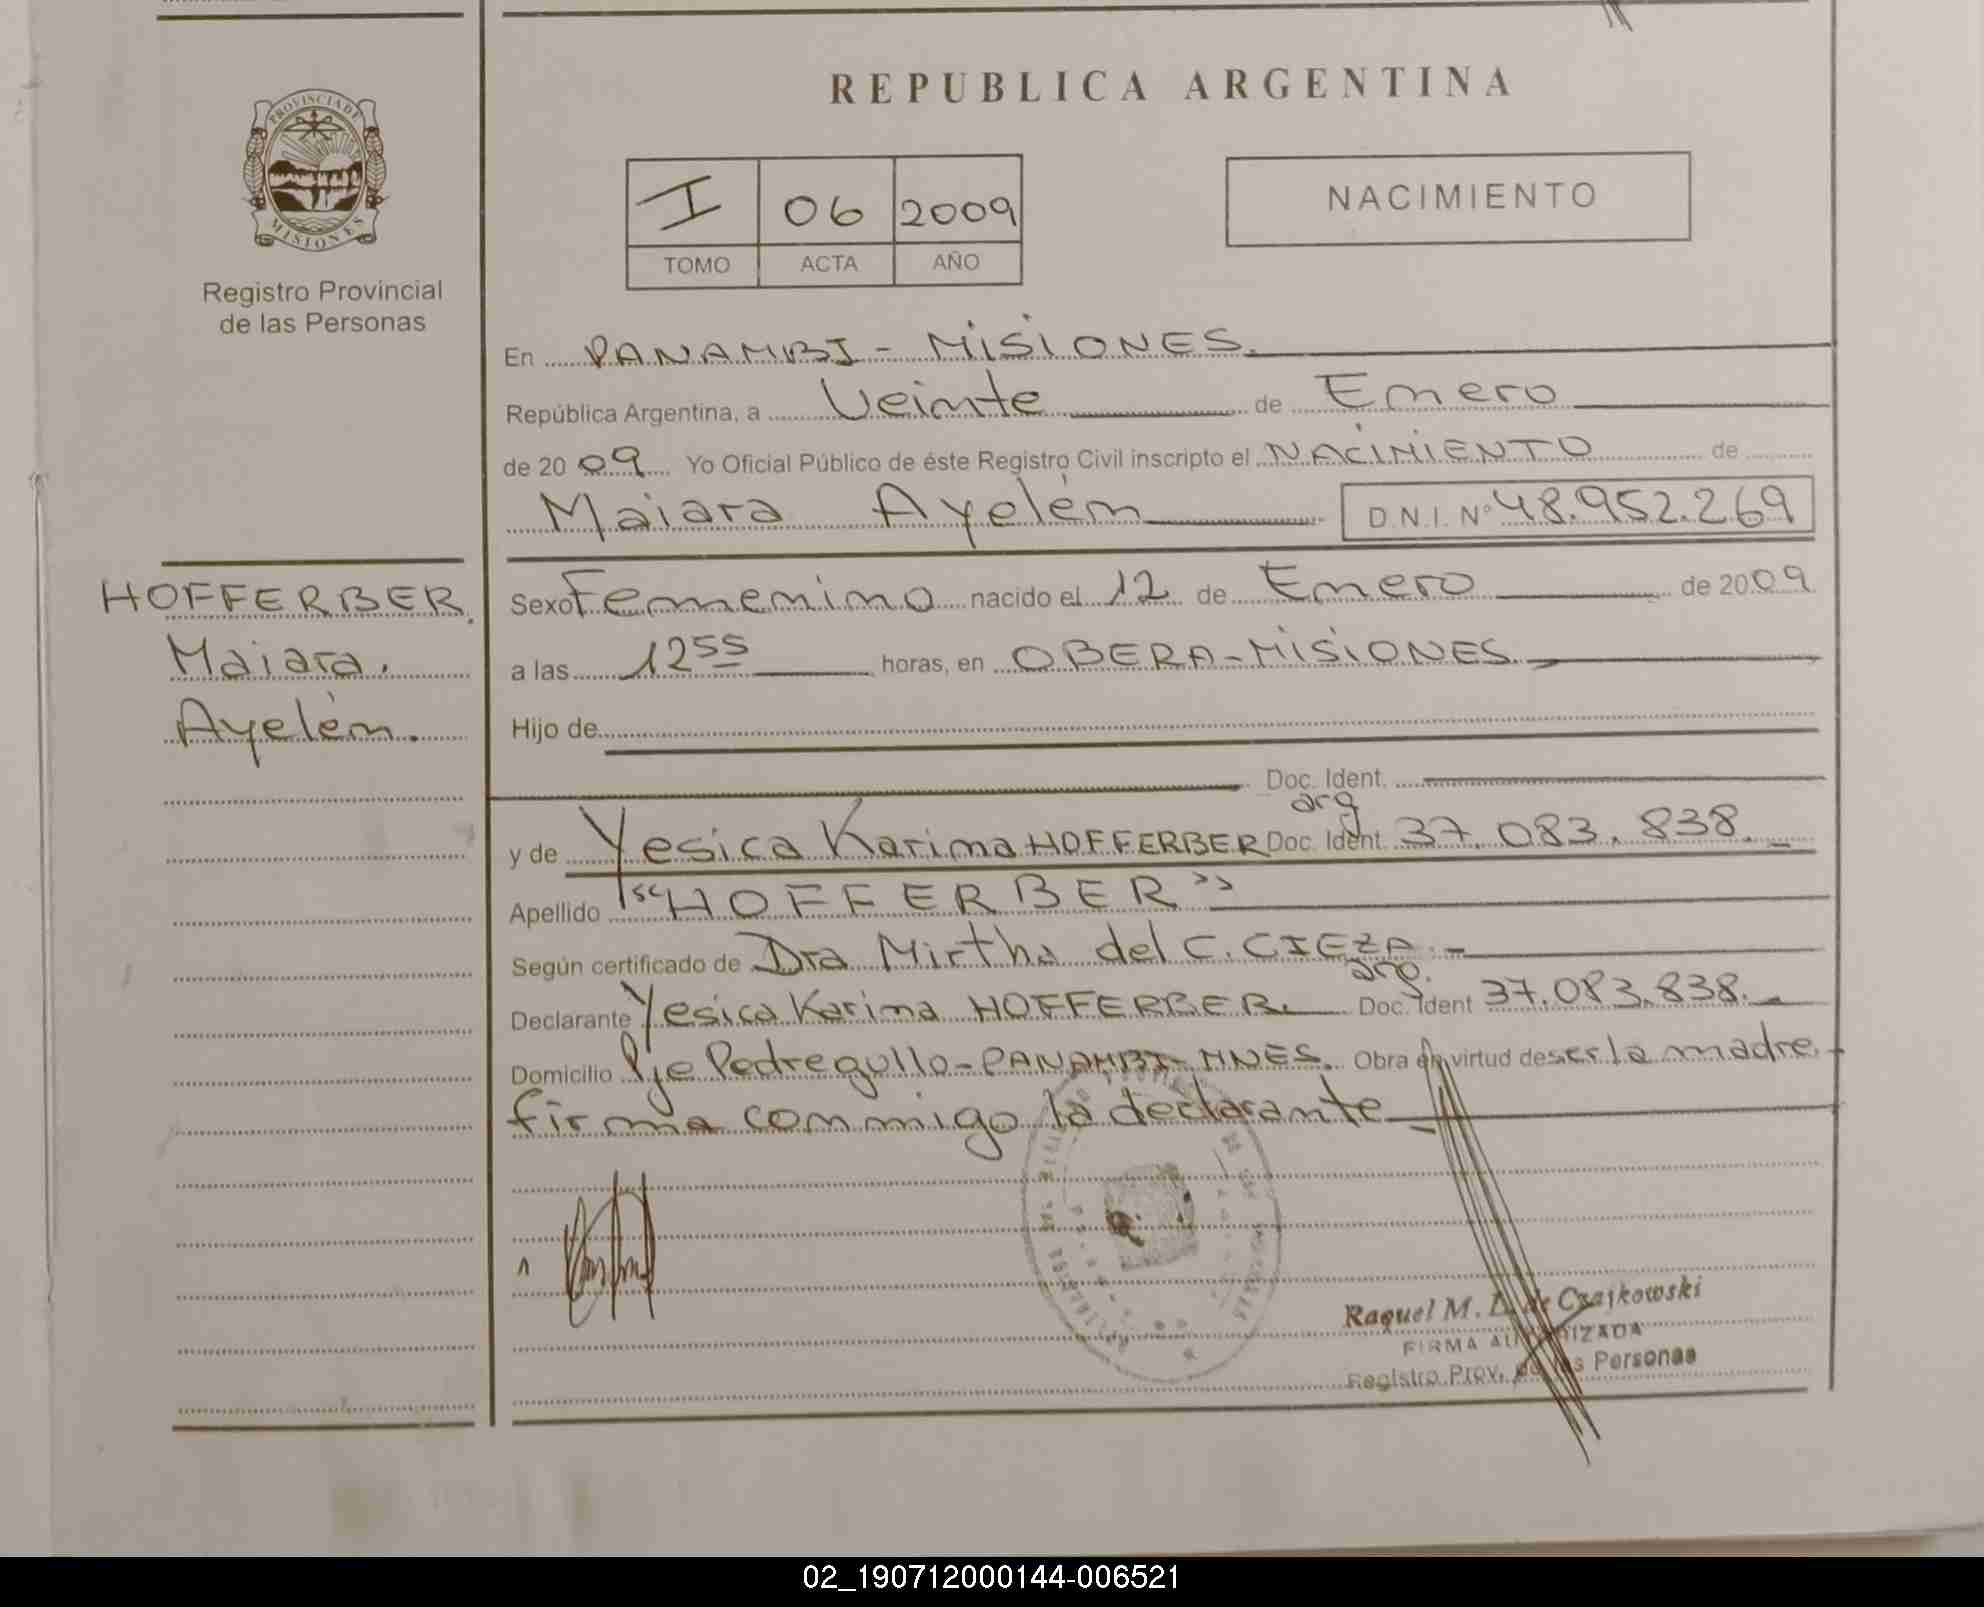 REPUBLICA ARGENTINA
PROVINCIA DE
MISIONES
Registro Provincial
de las Personas
I 06 2009
TOMO ACTA AÑO
NACIMIENTO
En PANAMBI - MISIONES.
República Argentina, a Veinte de Enero
de 2009 Yo Oficial Público de éste Registro Civil inscripto el NACIMIENTO de
Maiara Ayelén D.N.I. Nº 48.952.269
HOFFERBER.
Maiara.
Ayelén.
Sexo Femenino nacido el 12 de Enero de 2009
a las 12 55 horas, en OBERA - MISIONES.
Hijo de
Doc. Ident.
y de Yesica Karina HOFFERBER Doc. Ident. arg 37.083.838.
Apellido "HOFFERBER"
Según certificado de Dra Mirtha del C. CIEZA.
Declarante Yesica Karina HOFFERBER. Doc. Ident arg. 37.083.838.
Domicilio Pje Pedregullo - PANAMBI - MNES. Obra en virtud de ser la madre.
firma conmigo la declarante
Raquel M. L. de Czajkowski
FIRMA AUTORIZADA
Registro Prov. de las Personas
02_190712000144-006521